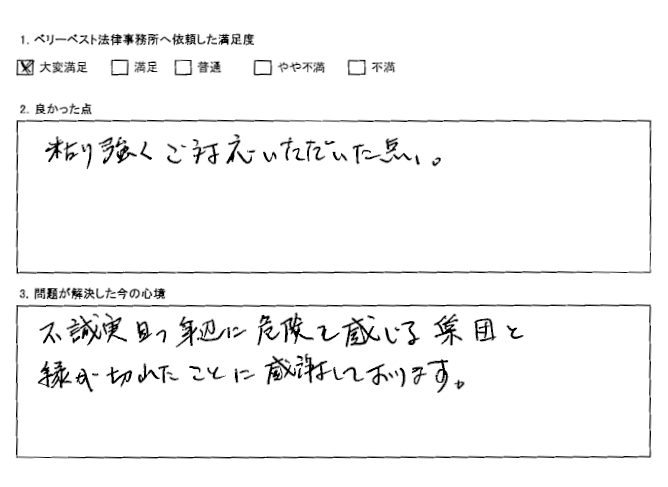 1. ベリーベスト法律事務所へ依頼した満足度
☒ 大変満足 ☐ 満足 ☐ 普通 ☐ やや不満 ☐ 不満
2. 良かった点
粘り強くご対応いただいた点。
3. 問題が解決した今の心境
不誠実且つ身辺に危険を感じる集団と
縁が切れたことに感謝しております。